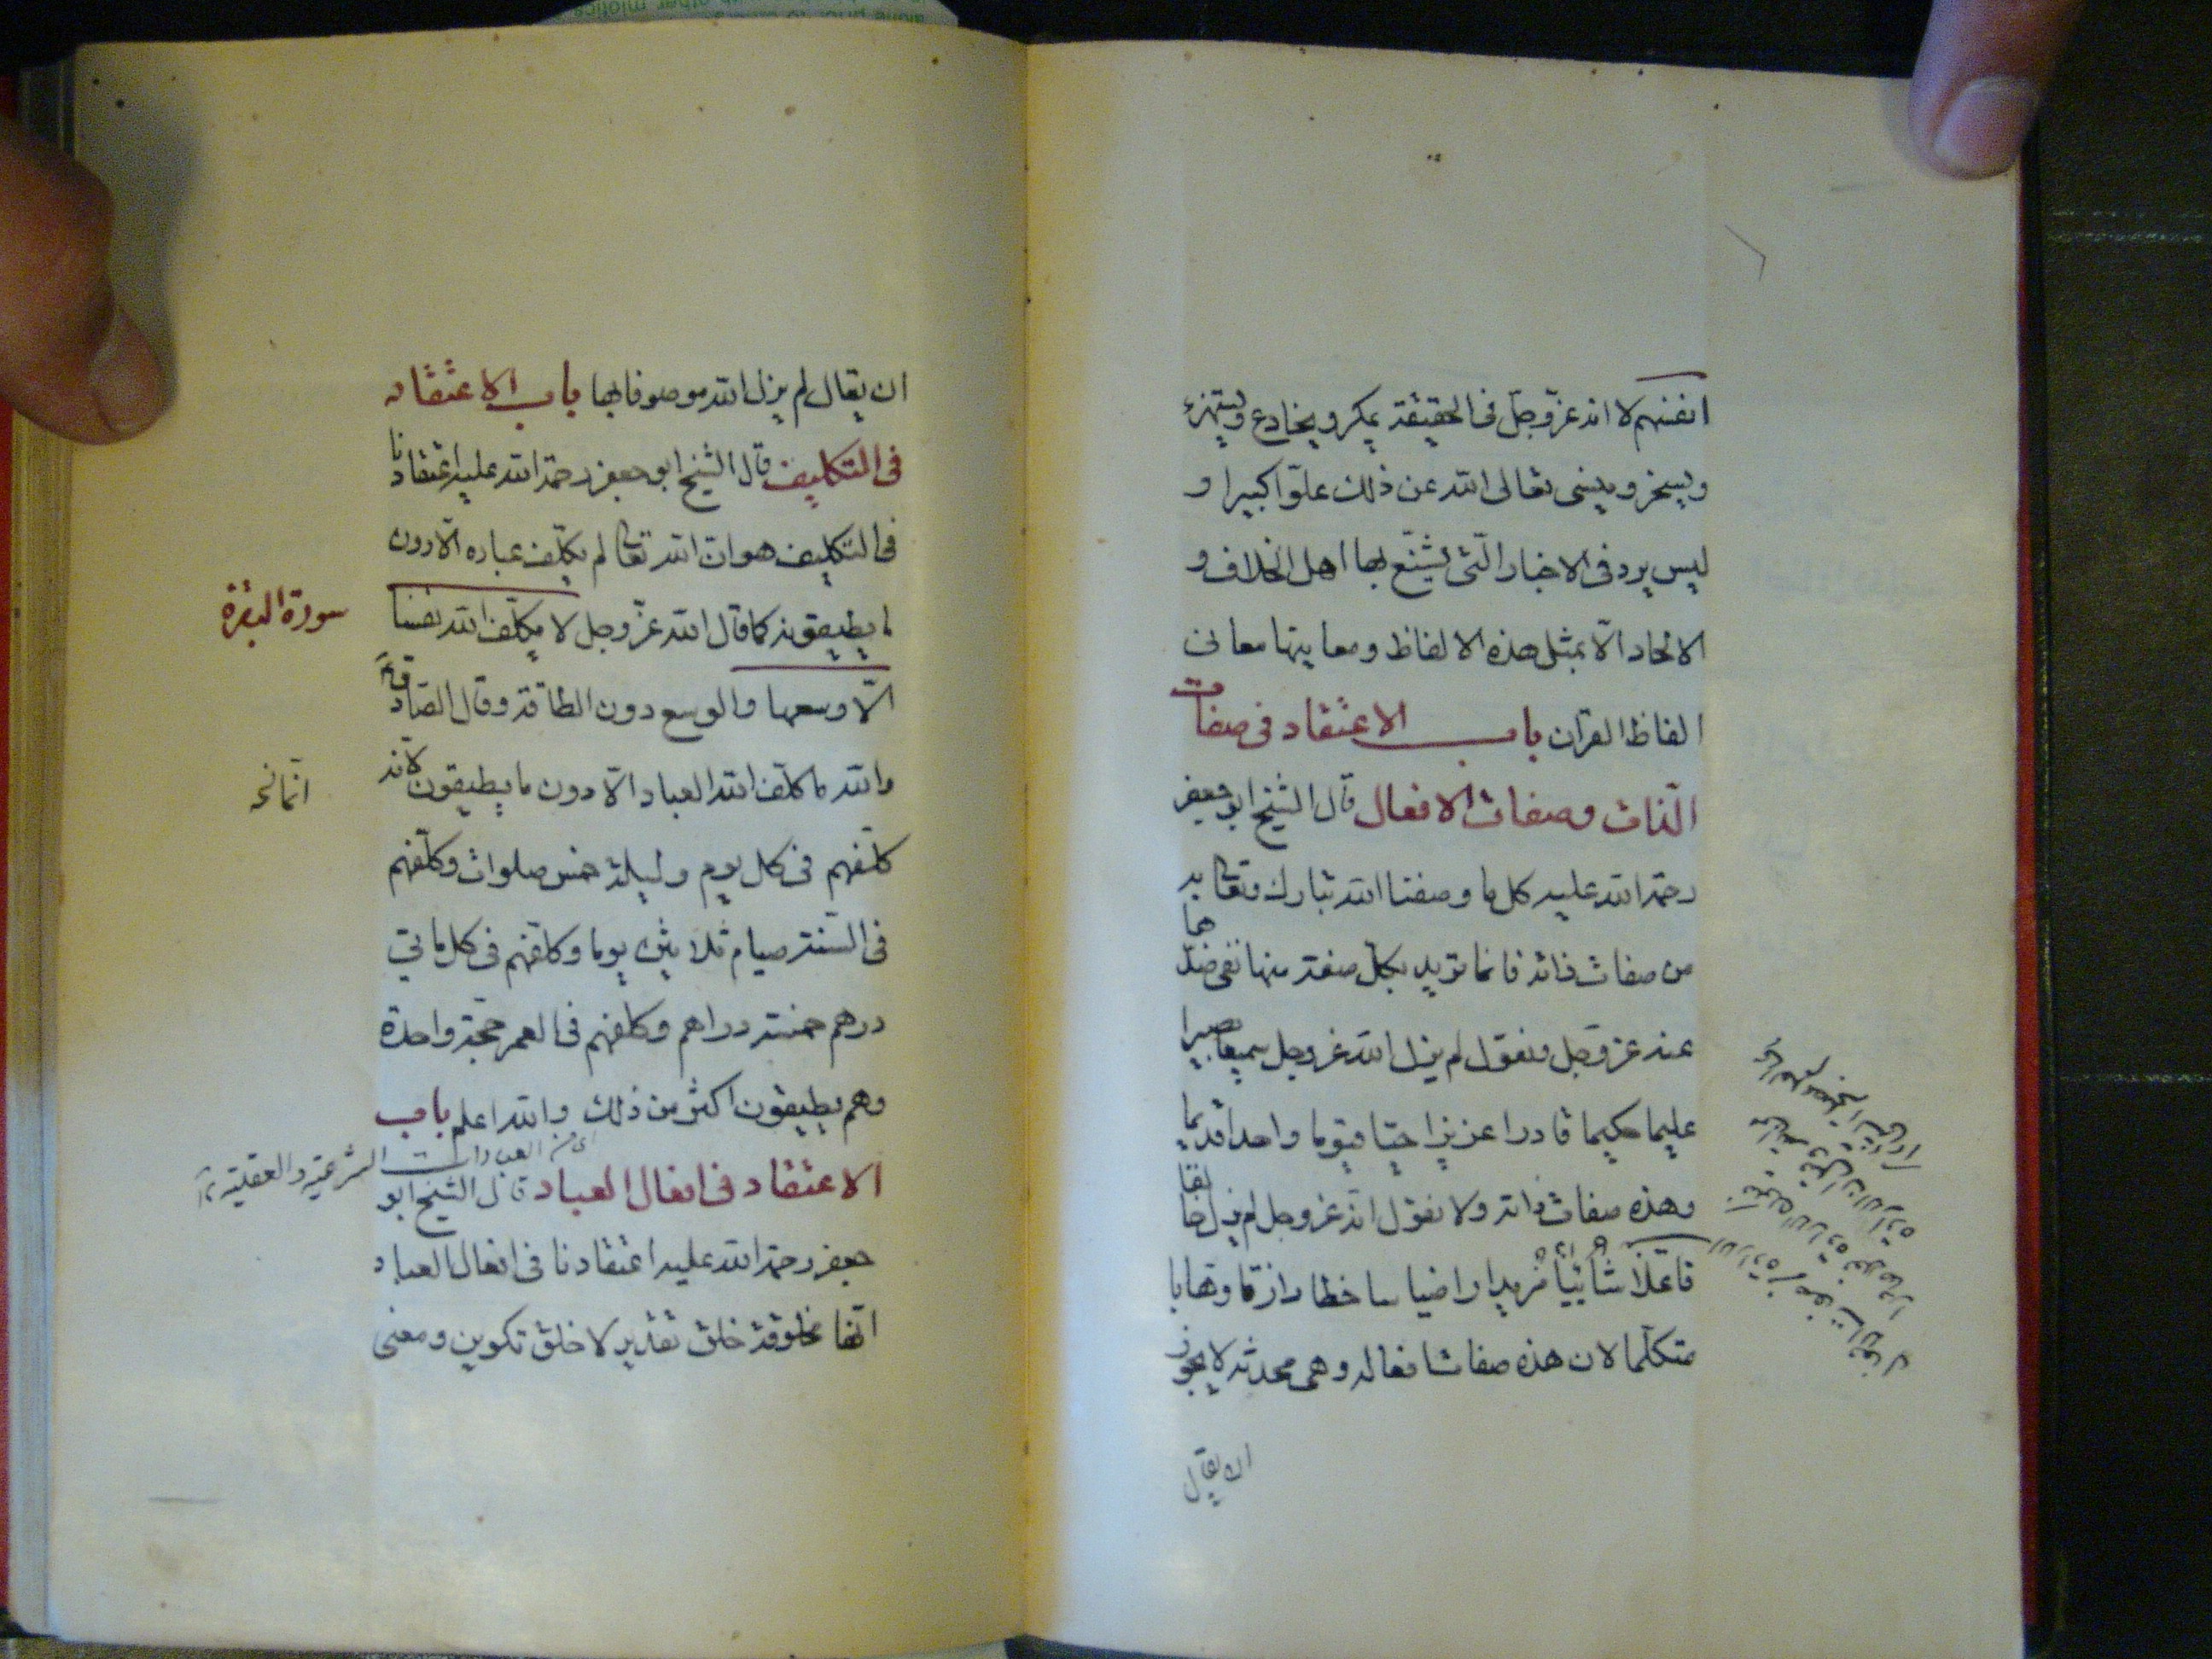 انفسهم لا انه عزّ وجلّ فى الحقيقة يمكر ويخادع ويستهزء
ويسخر وينسى تعالى الله عن ذلك علوّا كبيرا و
ليس يرد فى الاخبار الّتى يشنّع بها اهل الخلاف و
الالحاد الّا بمثل هذه الالفاظ ومعانيها معانى
الفاظ القرآن باب الاعتقاد فى صفات
الذات وصفات الافعال قال الشيخ ابو جعفر
رحمة الله عليه كل ما وصفنا الله تبارك وتعالى به
من صفات ذاته فانما نريد بكل صفة منها نفى ضدها
عنه عز وجل ونقول لم يزل الله عز وجل سميعا بصيرا
عليما حكيما قادرا عزيزا حيّا قيّوما واحدا قديما
وهذه صفات ذاته ولا نقول انه عز وجل لم يزل خالقا
فاعلا شائيا مريدا راضيا ساخطا رازقا وهابا
متكلّما لان هذه صفات افعاله وهى محدثة لا يجوز
ان يقال
ان يقال لم يزل الله موصوفا بها باب الاعتقاد
فى التكليف قال الشيخ ابو جعفر رحمة الله عليه اعتقادنا
فى التكليف هو انّ الله تعالى لم يكلّف عباده الّا دون
ما يطيقونه كما قال الله عزّ وجل لا يكلّف الله نفسا
سورة البقرة
الّا وسعها والوسع دون الطاقة وقال الصّادق
والله ما كلّف الله العباد الّا دون ما يطيقون لانه
كلّفهم فى كل يوم وليلة خمس صلوات وكلّفهم
فى السّنة صيام ثلاثين يوما وكلّفهم فى كل مأتى
درهم خمسة دراهم وكلفهم فى العمر حجّة واحدة
وهم يطيقون اكثر من ذلك والله اعلم باب
الاعتقاد فى افعال العباد قال الشيخ ابو
جعفر رحمة الله عليه اعتقادنا فى افعال العباد
انّها مخلوقة خلق تقدير لا خلق تكوين ومعنى